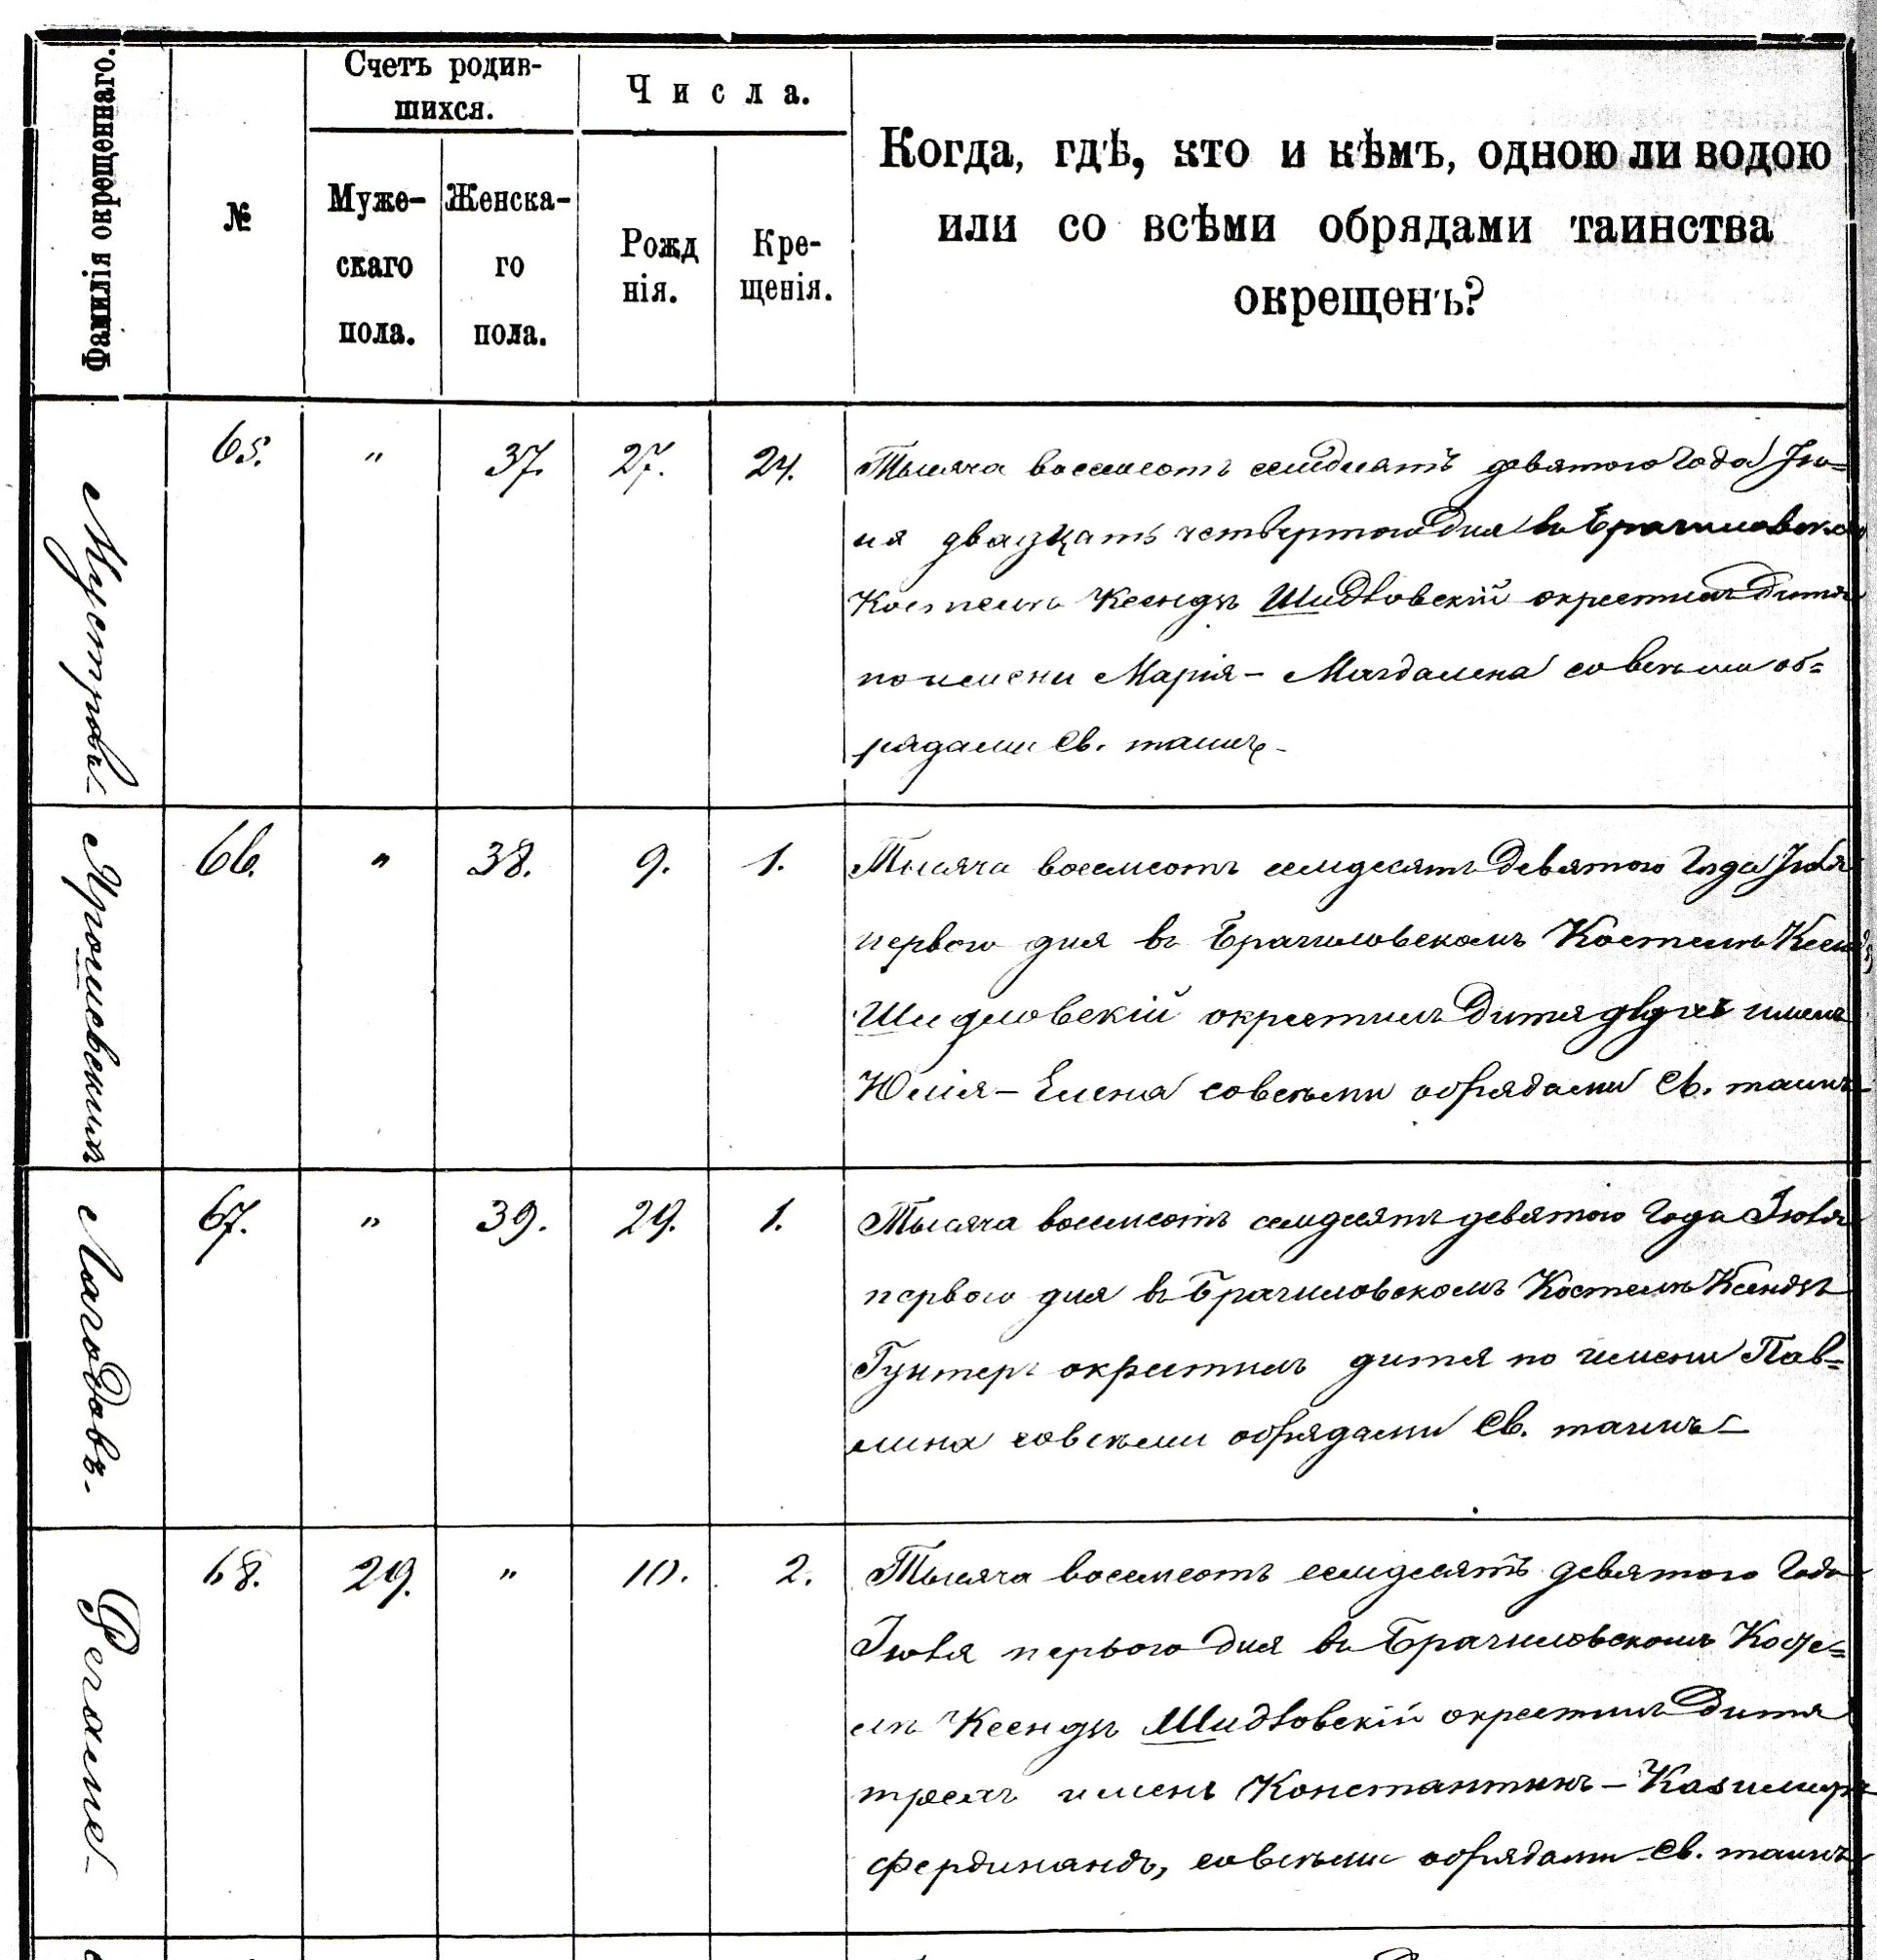 Фамилія окрещеннаго.
№
Счетъ родив-
шихся.
Муже-
скаго
пола.
Женска-
го
пола.
Числа.
Рожд
нія.
Кре-
щенія.
Когда, гдѣ, кто и кѣмъ, одною ли водою
или со всѣми обрядами таинства
окрещенъ?
65.
"
37.
27.
24.
Тысяча восемсотъ семдесятъ девятого Года Iю=
ня двадцать четвертого дня въ Брагиловском
Костелѣ Ксендзъ Шидловскій окрестилъ дитя
по имени Марія - Магдалена со всѣми об=
рядами Св. таинъ -
66.
"
38.
9.
1.
Тысяча восемсотъ семдесятъ девятого Года Iюля
первого дня въ Брагиловскомъ Костелѣ Ксендз
Шидловскій окрестилъ дитя двухъ именъ
Юлія - Елена со всѣми обрядами Св. таинъ -
Лагодовъ.
67.
"
39.
29.
1.
Тысяча восемсотъ семдесятъ девятого Года Iюля
первого дня въ Брагиловскомъ Костелѣ Ксендзъ
Гунтеръ окрестилъ дитя по имени Пав=
лина со всѣми обрядами Св. таинъ -
68.
29.
"
10.
2.
Тысяча восемсотъ семдесятъ девятого Года
Iюля первого дня въ Брагиловскомъ Косте=
лѣ Ксендзъ Шидловскій окрестилъ дитя
трехъ именъ Константинъ - Казимиръ
Фердинандъ, со всѣми обрядами Св. таинъ